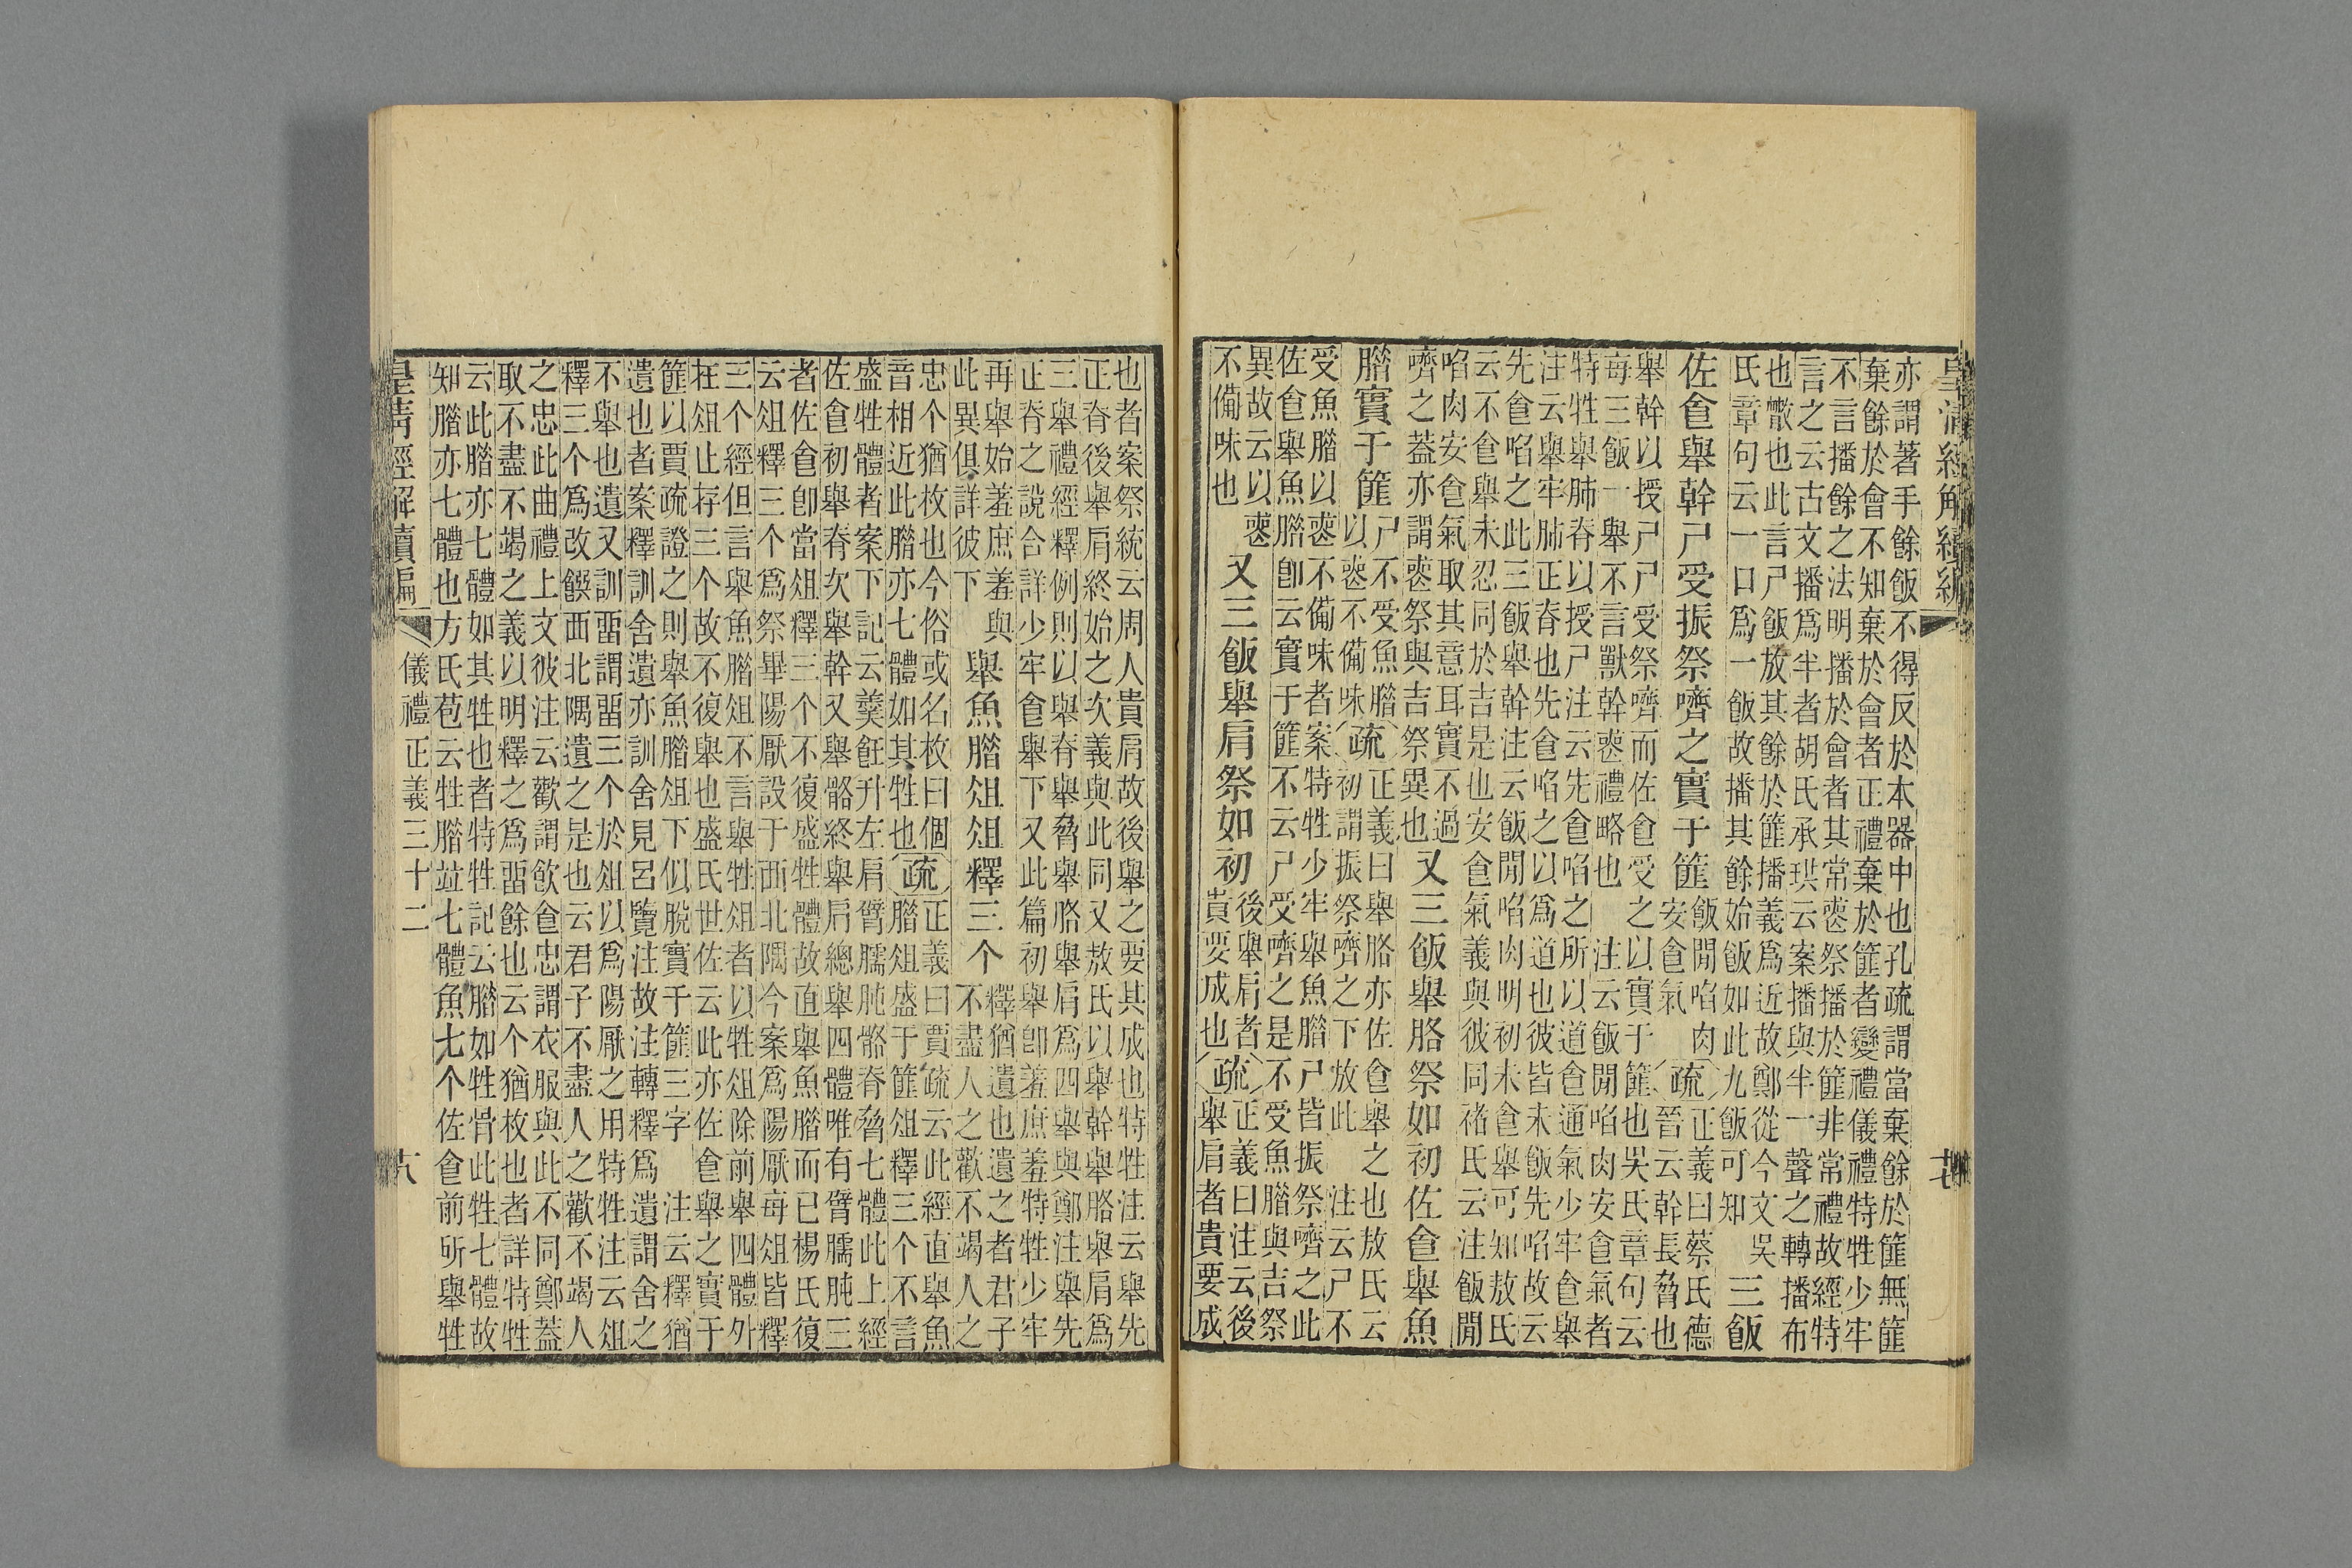 皇清經解續編
十七
亦謂著手餘飯不得反於本器中也孔疏謂當棄餘於篚無篚
棄餘於會不知棄於會者正禮棄於篚者變禮儀禮特牲少牢
不言播餘之法明播於會者其常喪祭播於篚非常禮故經特
言之云古文播爲半者胡氏承珙云案播與半一聲之轉播布
也㪚也此言尸飯放其餘於篚播義爲近故鄭從今文 吳
氏章句云一口爲一飯故播其餘始飯如此九飯可知
三飯
佐食舉幹尸受振祭嚌之實于篚
飯閒啗肉
安食氣
疏
正義曰蔡氏德
晉云幹長脅也
舉幹以授尸尸受祭嚌而佐食受之以實于篚也吳氏章句云
每三飯一舉不言獸幹喪禮略也 注云飯閒啗肉安食氣者
特牲舉肺脊以授尸注云先食啗之所以道食通氣少牢食舉
注云舉牢肺正脊也先食啗之以爲道也彼皆未飯先啗故云
先食啗之此三飯舉幹注云飯閒啗肉明初未食舉可知敖氏
云不食舉未忍同於吉是也安食氣義與彼同褚氏云注飯閒
啗肉安食氣取其意耳實不過
嚌之葢亦謂喪祭與吉祭異也
又三飯舉胳祭如初佐食舉魚
腊實于篚
尸不受魚腊
以喪不備味
疏
正義曰舉胳亦佐食舉之也敖氏云
初謂振祭嚌之下放此 注云尸不
受魚腊以喪不備味者案特牲少牢舉魚腊尸皆振祭嚌之此
佐食舉魚腊卽云實于篚不云尸受嚌之是不受魚腊與吉祭
異故云以喪
不備味也
又三飯舉肩祭如初
後舉肩者
貴要成也
疏
正義曰注云後
舉肩者貴要成
也者案祭統云周人貴肩故後舉之要其成也特牲注云舉先
正脊後舉肩終始之次義與此同又敖氏以舉幹舉胳舉肩爲
三舉禮經釋例則以舉脊舉脅舉胳舉肩爲四舉與鄭注舉先
正脊之說合詳少牢食舉下又此篇初舉卽羞庶羞特牲少牢
再舉始羞庶羞與
此異俱詳彼下
舉魚腊俎俎釋三个
釋猶遺也遺之者君子
不盡人之歡不竭人之
忠个猶枚也今俗或名枚曰個
音相近此腊亦七體如其牲也
疏
正義曰賈疏云此經直舉魚
腊俎盛于篚俎釋三个不言
盛牲體者案下記云羹飪升左肩臂臑肫骼脊脅七體此上經
佐食初舉脊次舉幹又舉骼終舉肩總舉四體唯有臂臑肫三
者佐食卽當俎釋三个不復盛牲體故直舉魚腊而已楊氏復
云俎釋三个爲祭畢陽厭設于西北隅今案爲陽厭每俎皆釋
三个經但言舉魚腊俎不言舉牲俎者以牲俎除前舉四體外
在俎止存三个故不復舉也盛氏世佐云此亦佐食舉之實于
篚以賈疏證之則舉魚腊俎下似脫實于篚三字 注云釋猶
遺也者案釋訓舍遺亦訓舍見呂覽注故注轉釋爲遺謂舍之
不舉也遺又訓畱謂畱三个於俎以爲陽厭之用特牲注云俎
釋三个爲改饌西北隅遺之是也云君子不盡人之歡不竭人
之忠此曲禮上文彼注云歡謂飲食忠謂衣服與此不同鄭葢
取不盡不竭之義以明釋之爲畱餘也云个猶枚也者詳特牲
云此腊亦七體如其牲也者特牲記云腊如牲骨此牲七體故
知腊亦七體也方氏苞云牲腊竝七體魚七个佐食前所舉牲
皇清經解續編
儀禮正義三十二
十八